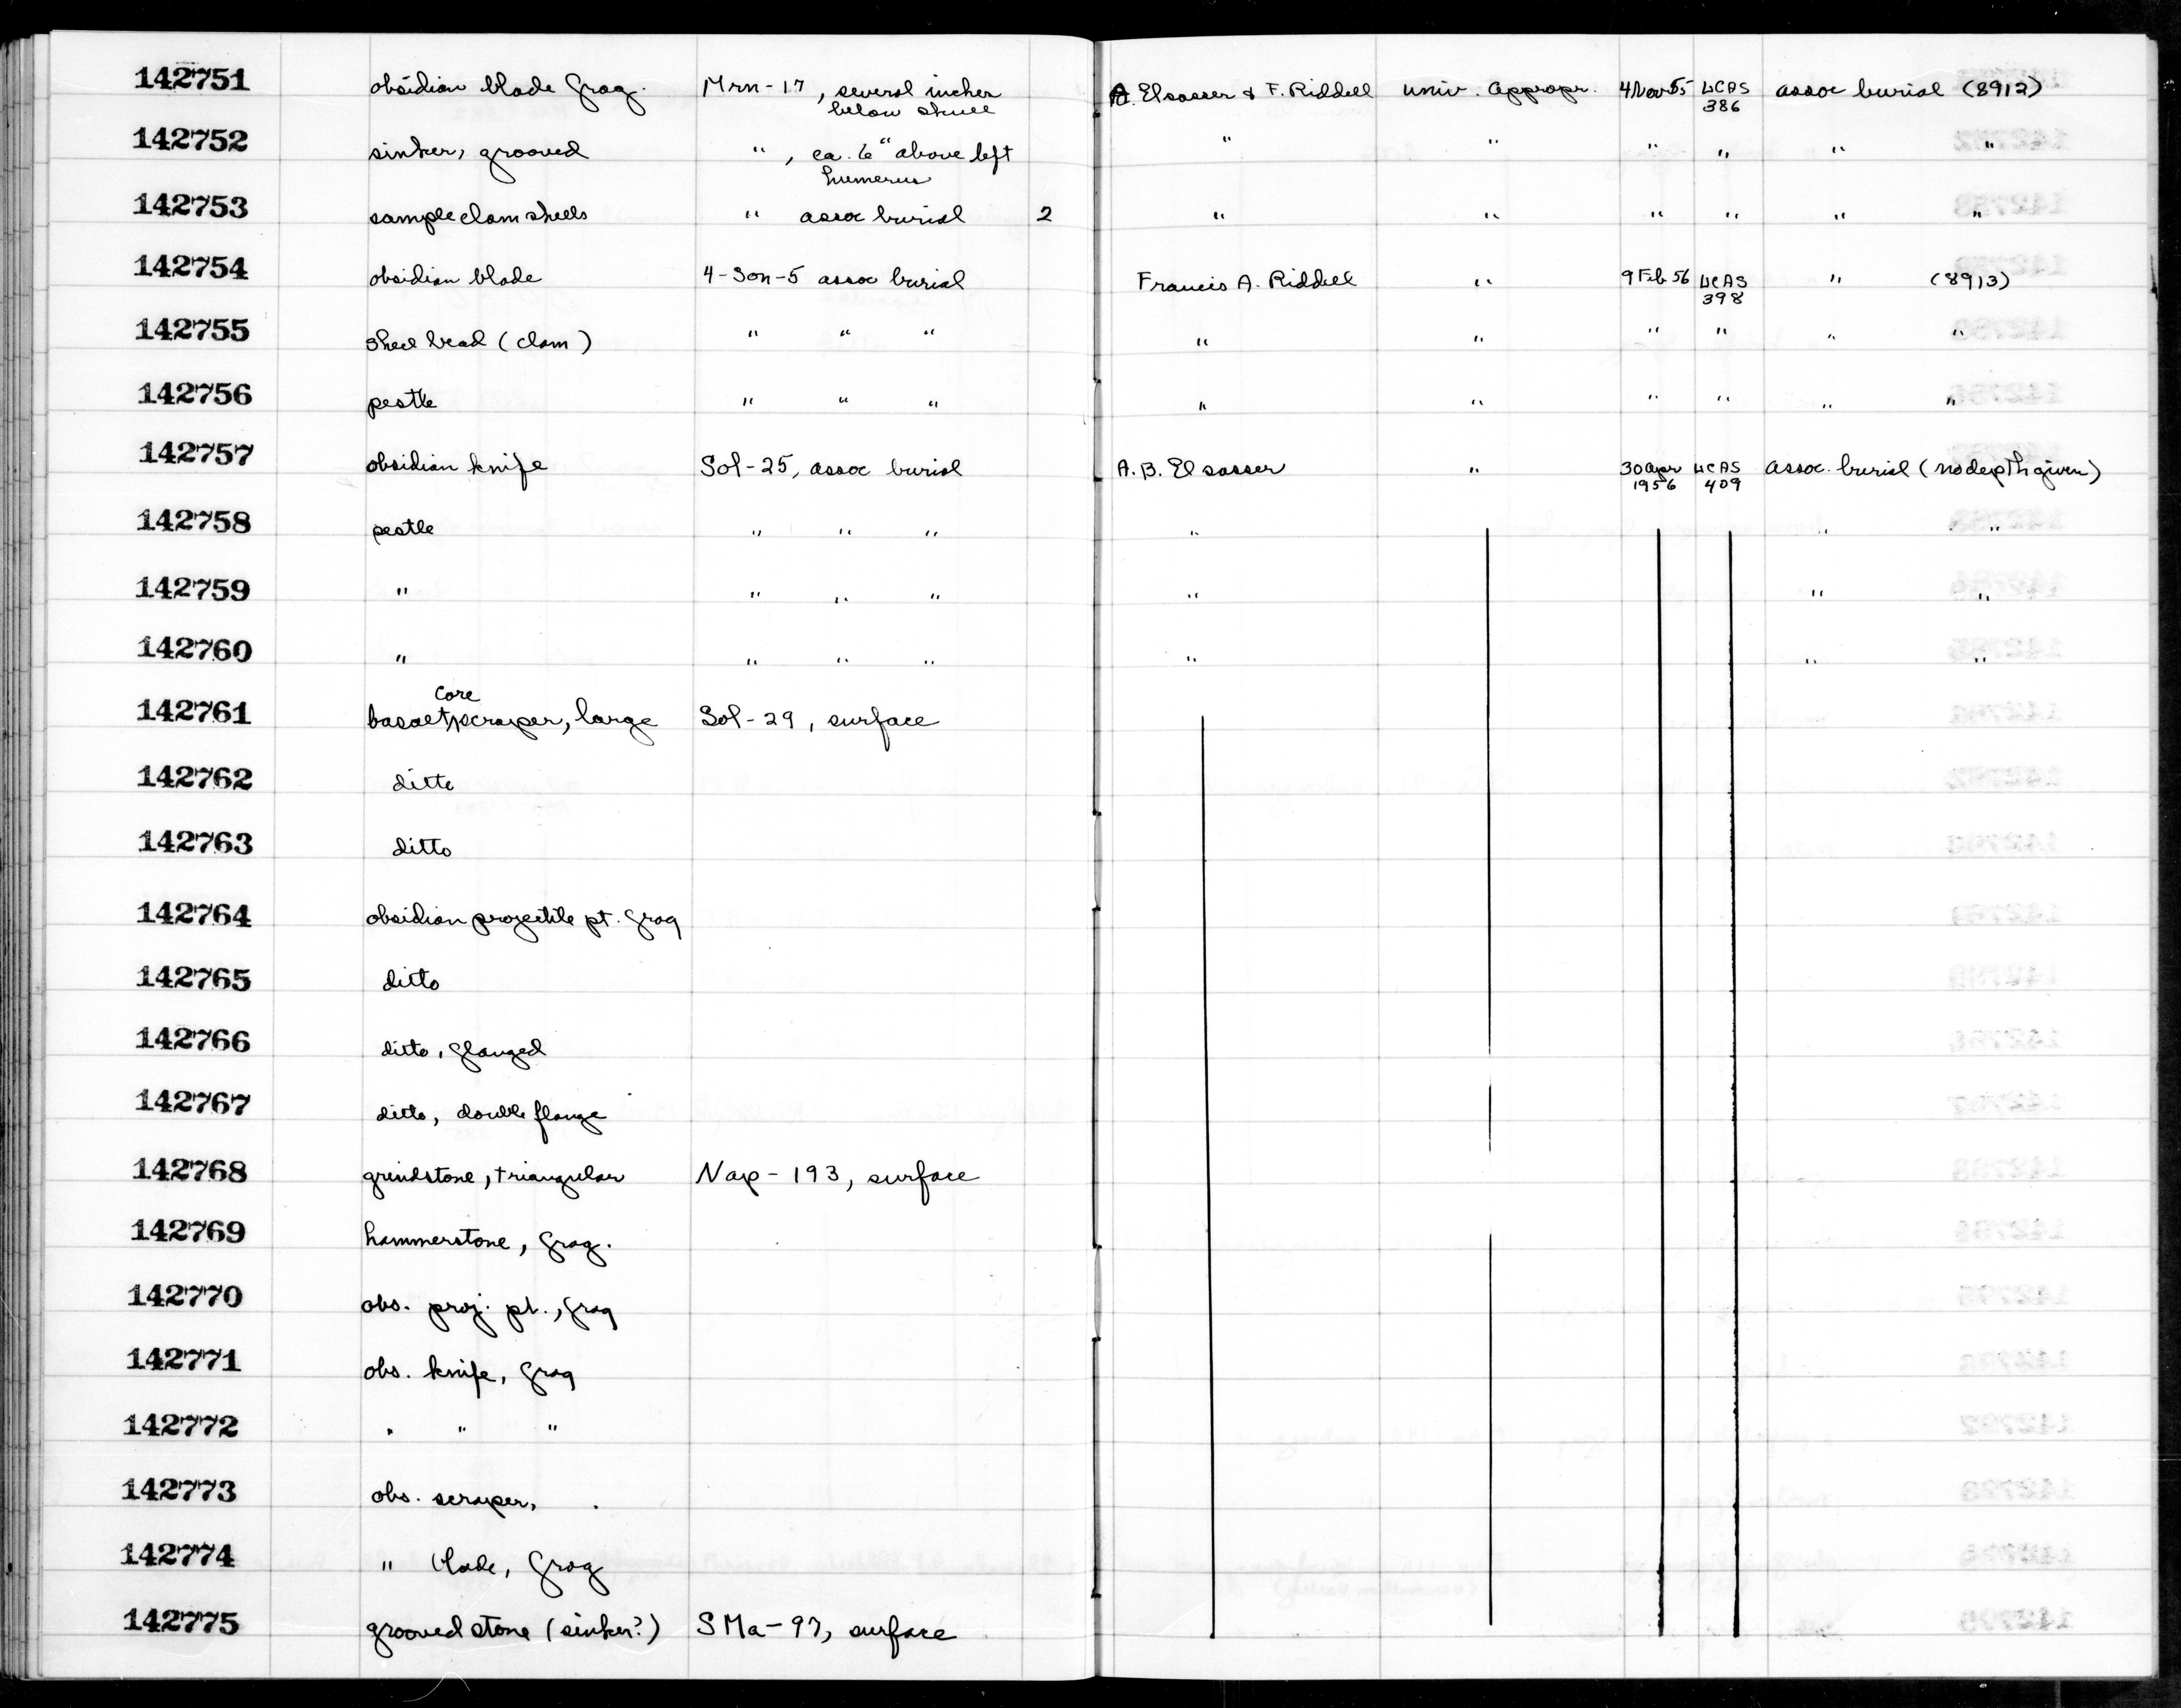 142751 obsidian blade frag. Mrn-17, several inches A. Elsasser & F. Riddell Univ. Appropr. 4 Nov 55 UCAS assoc burial (8912)
below skull 386
142752 sinker, grooved " , ca. 6" above left " " " " " "
humerus
142753 sample clam shells " assoc burial 2 " " " " " "
142754 obsidian blade 4-Son-5 assoc burial Francis A. Riddell " 9 Feb 56 UCAS " (8913)
398
142755 shell bead (clam) " " " " " " " " "
142756 pestle " " " " " " " " "
142757 obsidian knife Sol-25, assoc burial A. B. Elsasser " 30 Apr UCAS assoc. burial (no depth given)
1956 409
142758 pestle " " " " " "
142759 " " " " " " "
142760 " " " " " " "
core
142761 basalt scraper, large Sol-29, surface
142762 ditto
142763 ditto
142764 obsidian projectile pt. frag
142765 ditto
142766 ditto, flanged
142767 ditto, double flange
142768 grindstone, triangular Nap-193, surface
142769 hammerstone, frag.
142770 obs. proj. pt., frag
142771 obs. knife, frag
142772 " " "
142773 obs. scraper,
142774 " blade, frag
142775 grooved stone (sinker?) SMa-97, surface